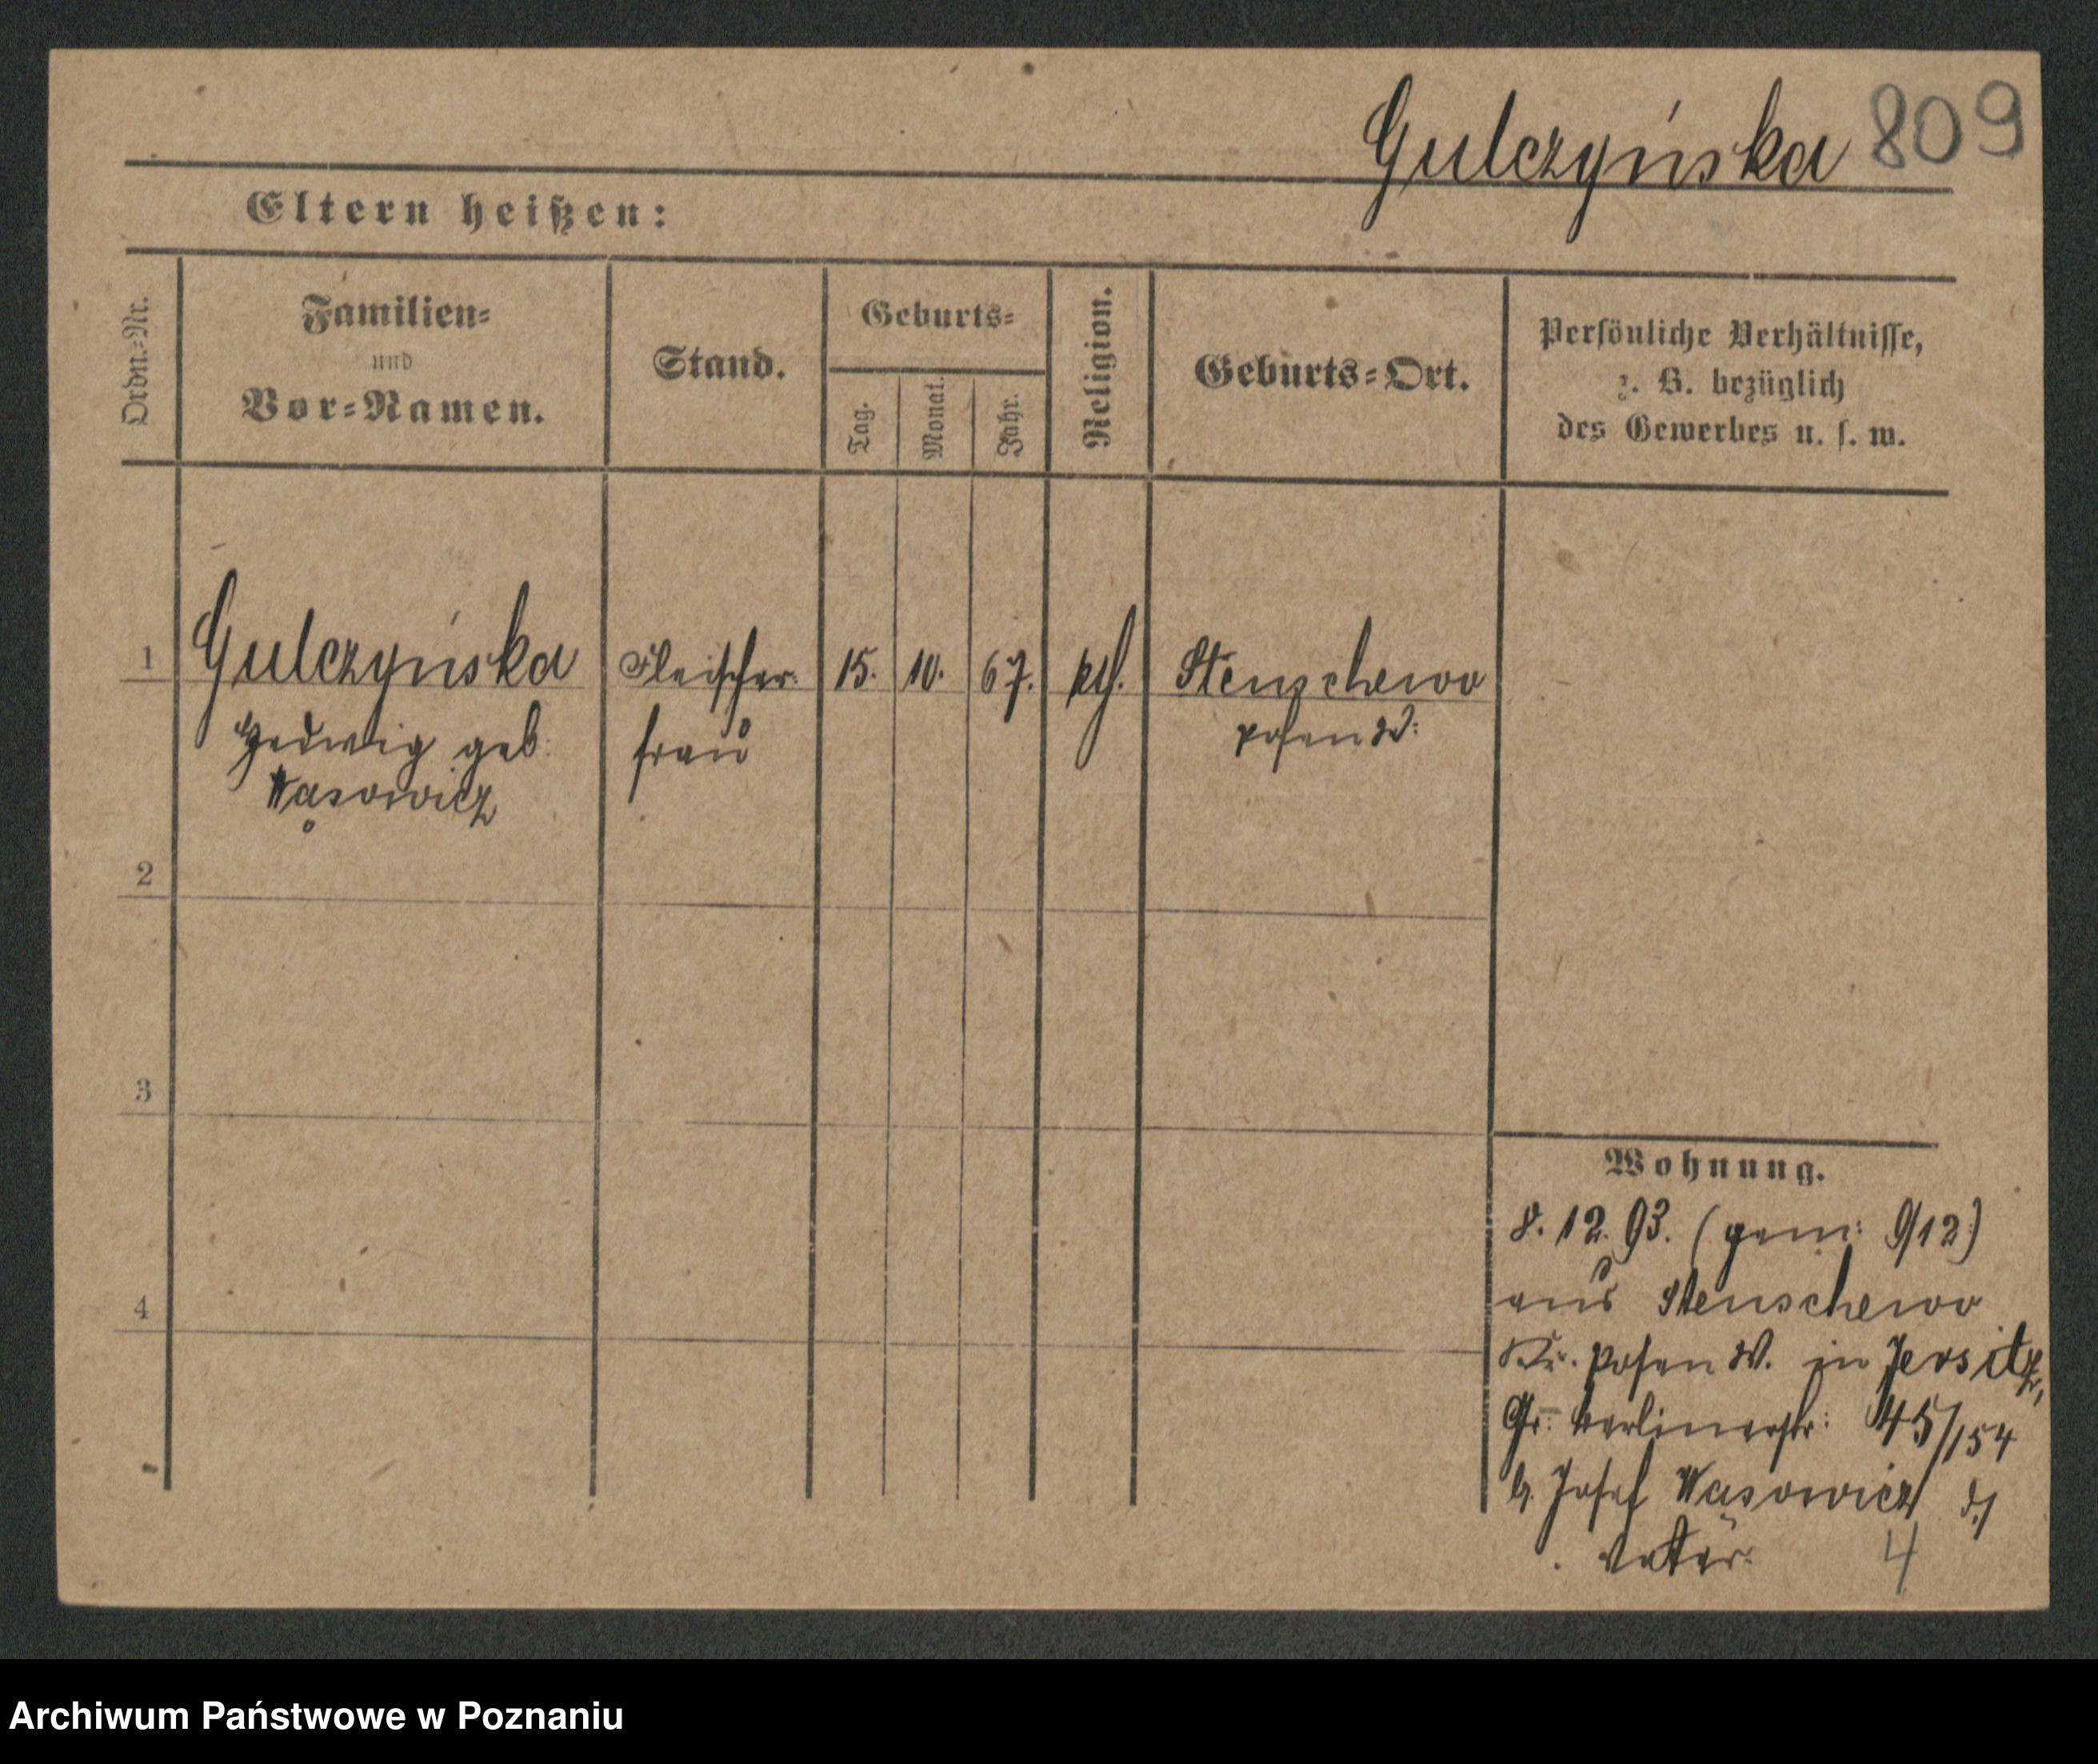 Gulczyńska 809
Eltern heißen:
Ordn.-Nr.
Familien-
und
Vor-Namen.
Stand.
Geburts-
Tag.
Monat.
Jahr.
Religion.
Geburts-Ort.
Persönliche Verhältnisse,
z. B. bezüglich
des Gewerbes u. s. w.
1 Gulczyńska Fleischer- 15. 10. 67. kth. Stenschewo
Hedwig geb: frau Posen W:
Wąsowicz
2
3
4
Wohnung.
8. 12. 93. (gem: 9/12)
aus Stenschewo
Kr. Posen W. in Jersitz,
Gr: Berlinerstr: 45/154
b. Josef Wąsowicz d/
Vater. 4
Archiwum Państwowe w Poznaniu